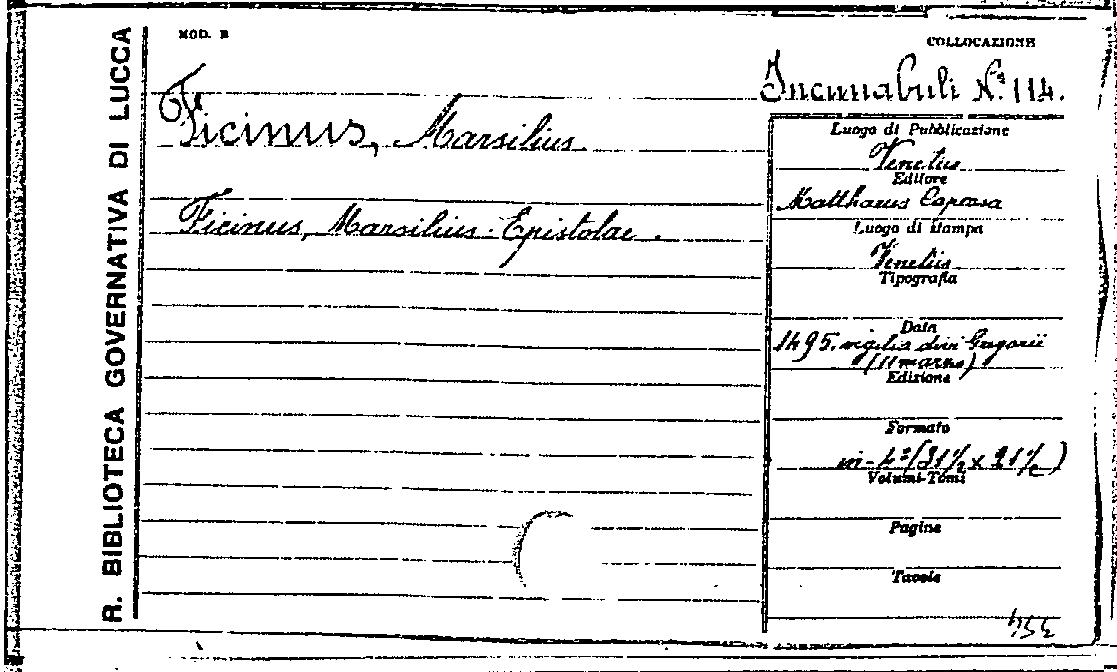 R. BIBLIOTECA GOVERNATIVA DI LUCCA
MOD. B
Ficinus, Marsilius.
Ficinus, Marsilius - Epistolae.
COLLOCAZIONE
Incunabuli N.º 114.
Luogo di Pubblicazione
Venetiis
Editore
Matthaeus Capcasa
Luogo di stampa
Venetiis
Tipografia
Data
1495. vigilia divi Gregorii
(11 marzo)
Edizione
Formato
in-4º (31½ x 21½)
Volumi-Tomi
Pagine
Tavole